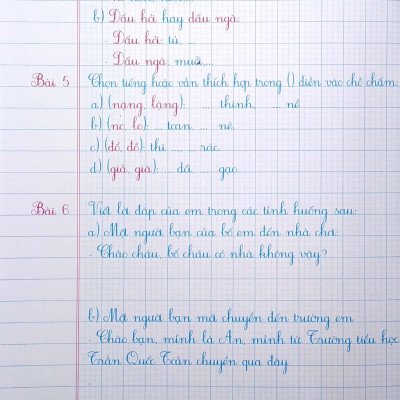 b) Dấu hỏi hay dấu ngã:
- Dấu hỏi: tủ ...
- Dấu ngã: muỗ...
Bài 5 Chọn tiếng hoặc vần thích hợp trong () điền vào chỗ chấm:
a) (nặng, lặng): ... thinh, ... nề
b) (no, lo): ... toan, ... nê
c) (đổ, đỗ): thi ... ... rác
d) (giả, giã): ... dối ... gạo
Bài 6 Viết lời đáp của em trong các tình huống sau:
a) Một người bạn của bố em đến nhà chơi:
- Chào cháu, bố cháu có nhà không vậy?
b) Một người bạn mới chuyển đến trường em
- Chào bạn, mình là An, mình từ Trường tiểu học
Trần Quốc Toản chuyển qua đây.